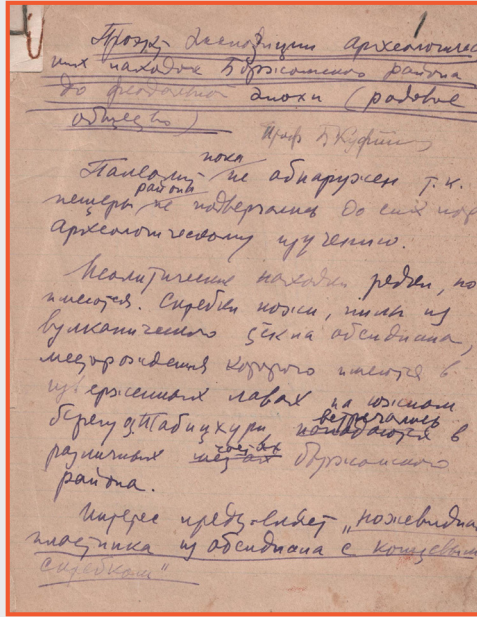 1
Проэкт экспозиции археологичес-
ких находок Боржомского района
до феодальной эпохи (родовое
общество)
Проф Б Куфтин
пока
Палеолит не обнаружен т. к.
района
пещеры не подвергались до сих пор
археологическому изучению.
Неолитические находки редки, но
имеются. Скребки ножи, пилы из
вулканического стекла обсидиана,
месторождения которого имеются в
изверженных лавах на южном
берегу оз. Табицхури встречались
попадаются в
различных частях
местах боржомского
района.
Интерес представляет „ножевидная
пластинка из обсидиана с концевым
скребком"